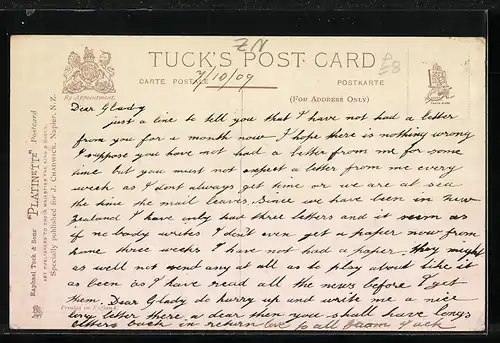 TUCK'S POST CARD
CARTE POSTALE
POSTKARTE
(FOR ADDRESS ONLY)
By Appointment.
ZN
7/10/09
Dear Glady
just a line to tell you that I have not had a letter
from you for a month now I hope there is nothing wrong
I suppose you have not had a letter from me for some
time but you must not expect a letter from me every
week as I dont always get time or we are at sea
the time the mail leaves. Since we have been in New
Zealand I have only had three letters and it seem as
if no body writes I don't even get a paper now from
home three weeks I have not had a paper. they might
as well not send any at all as to play about like it
as been as I have read all the news before I get
them. Dear Glady do hurry up and write me a nice
long letter there a dear then you shall have long
letters back in return love to all from Jack
Raphael Tuck & Sons' "PLATINETTE" Postcard
ART PUBLISHERS TO THEIR MAJESTIES THE KING & QUEEN.
Specially published for J. CHADWICK, Napier, N.Z.
Printed in England.